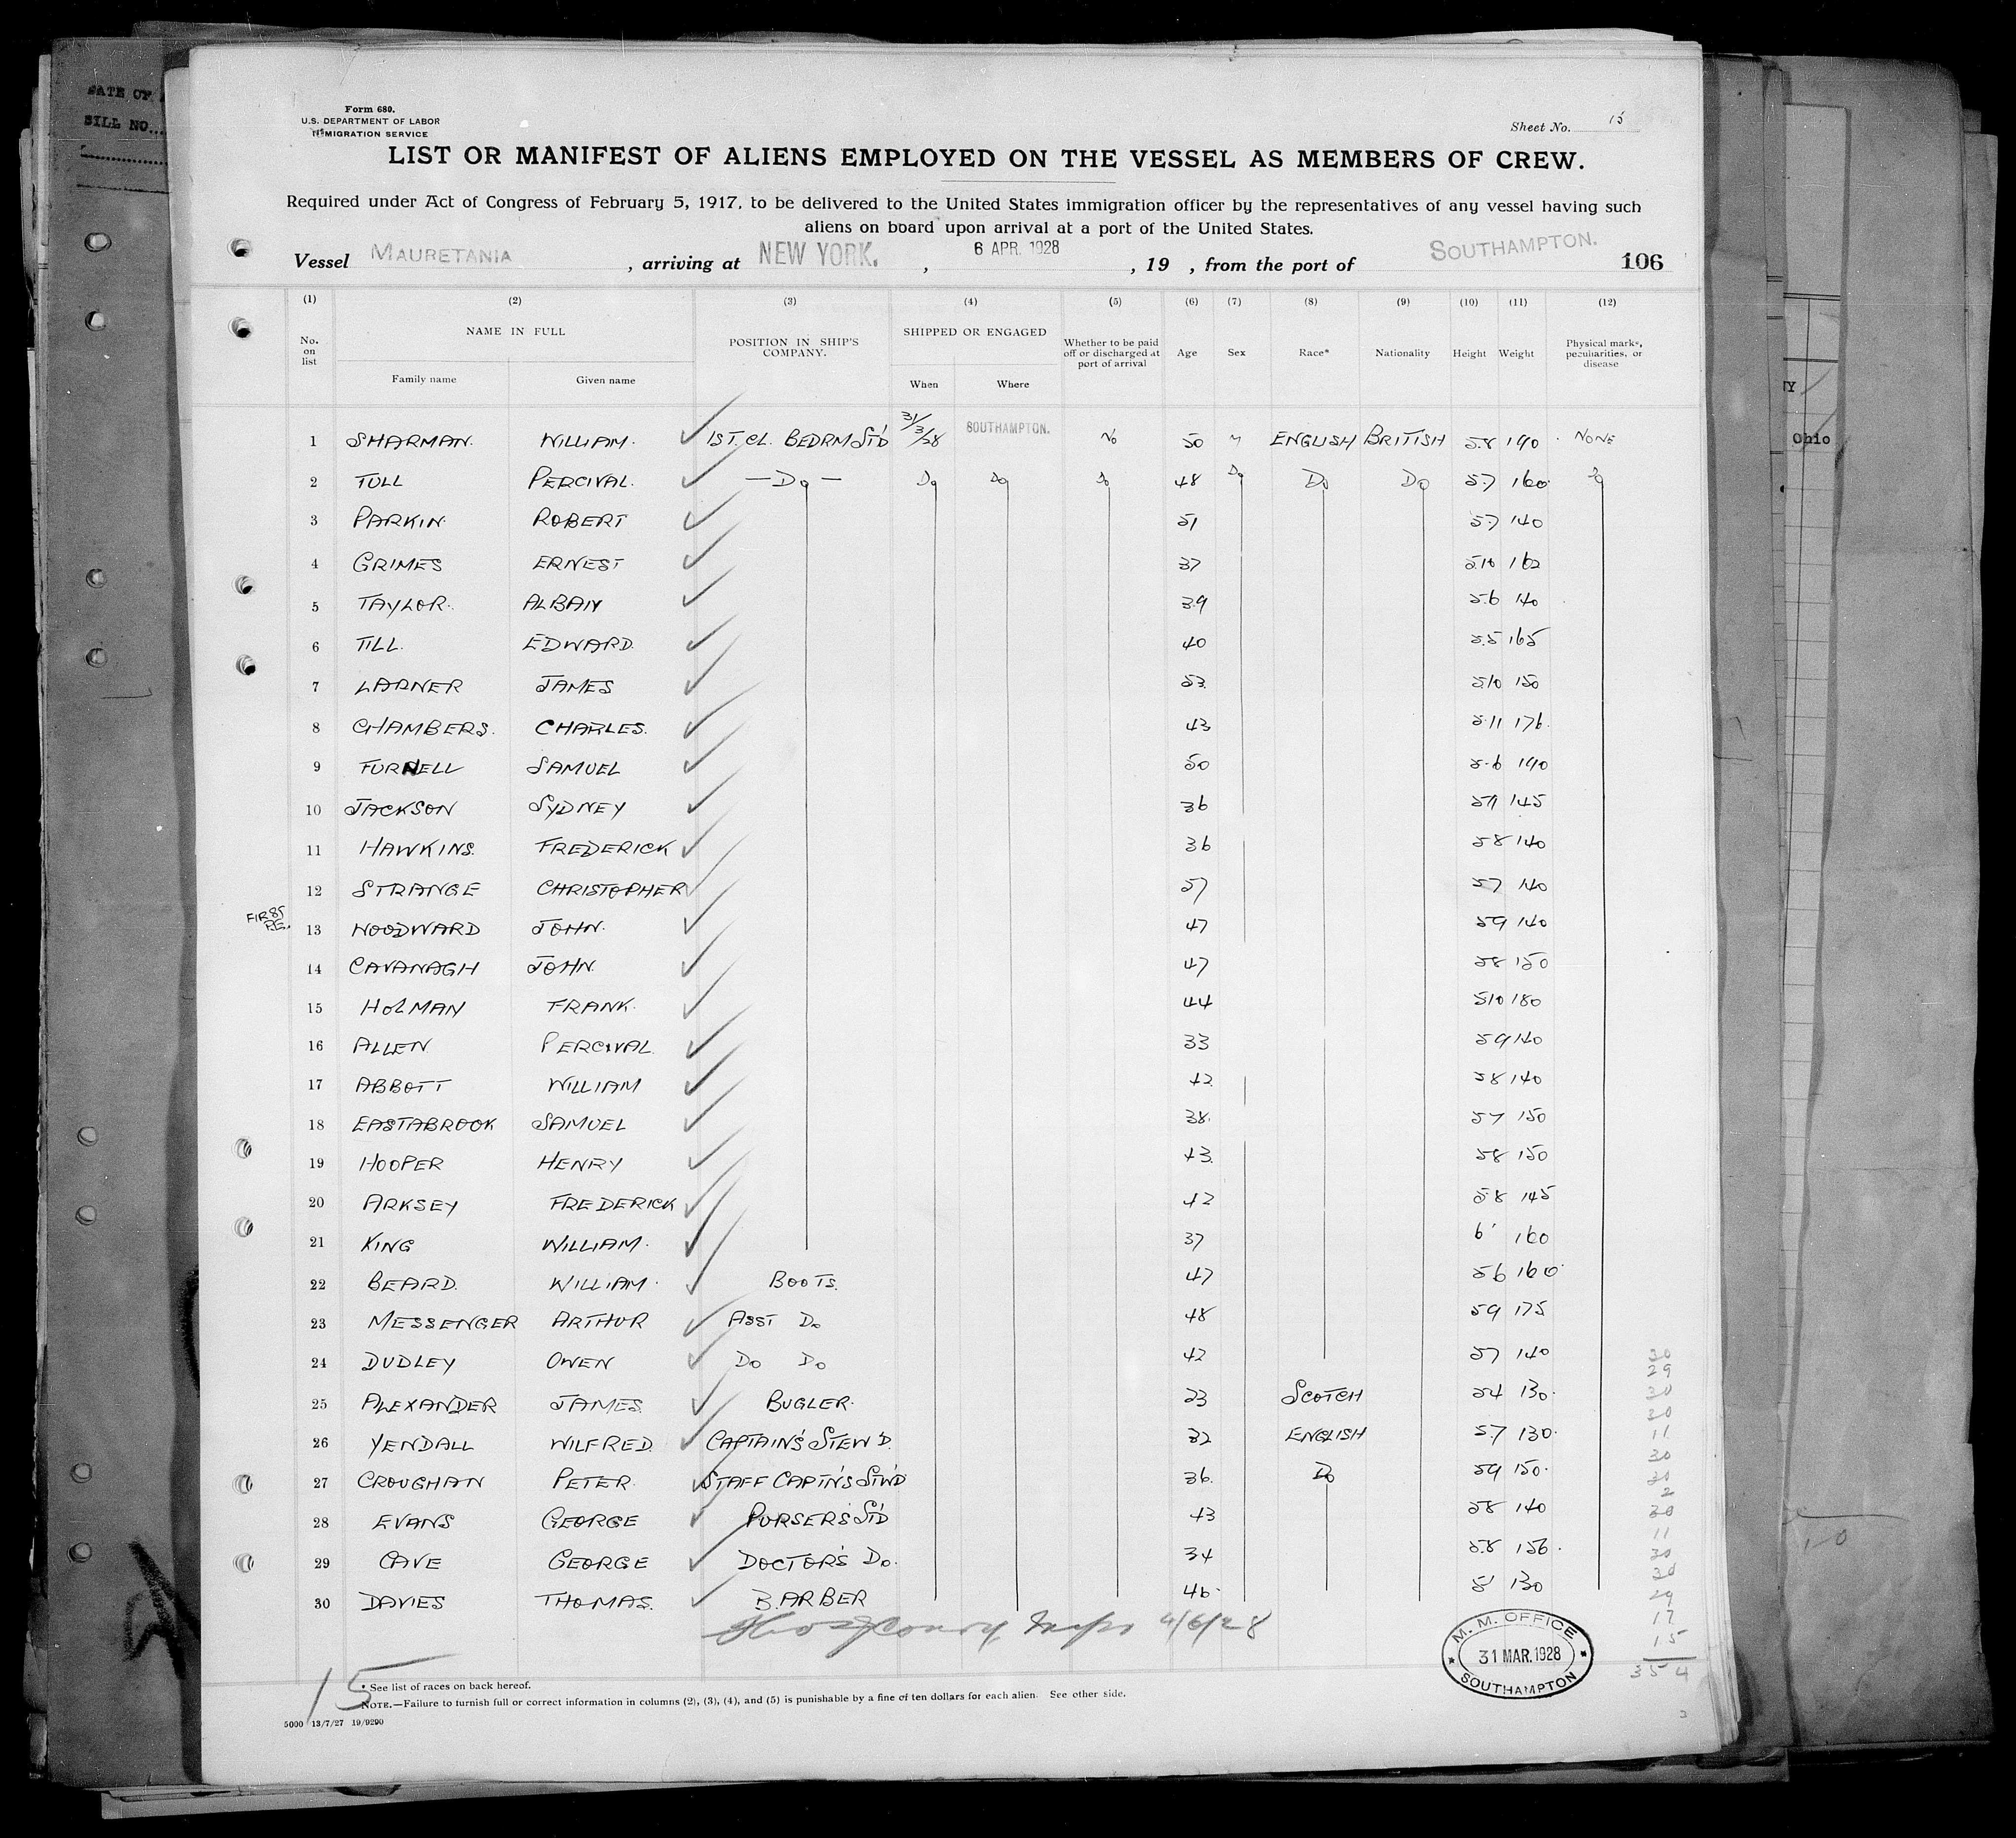 DATE OF
BILL NO....
Form 680.
U.S. DEPARTMENT OF LABOR
IMMIGRATION SERVICE
Sheet No. 15
LIST OR MANIFEST OF ALIENS EMPLOYED ON THE VESSEL AS MEMBERS OF CREW.
Required under Act of Congress of February 5, 1917, to be delivered to the United States immigration officer by the representatives of any vessel having such
aliens on board upon arrival at a port of the United States.
Vessel MAURETANIA, arriving at NEW YORK., 6 APR. 1928, 19 , from the port of SOUTHAMPTON. 106
(1) (2) (3) (4) (5) (6) (7) (8) (9) (10) (11) (12)
No. on list NAME IN FULL POSITION IN SHIP'S COMPANY. SHIPPED OR ENGAGED Whether to be paid off or discharged at port of arrival Age Sex Race* Nationality Height Weight Physical marks, peculiarities, or disease
Family name Given name When Where
1 SHARMAN. WILLIAM. 1ST. CL. BEDRM ST'D 31/3/28 SOUTHAMPTON. No 50 M ENGLISH BRITISH 5.8 190 NONE
2 TULL PERCIVAL. —Do— Do Do Do 48 Do Do Do 5.7 160 Do
3 PARKIN. ROBERT 51 5.7 140
4 GRIMES ERNEST 37 5.10 162
5 TAYLOR. ALBAN 39 5.6 140
6 TILL. EDWARD. 40 5.5 165
7 LARNER JAMES 53 5.10 150
8 CHAMBERS. CHARLES. 43 5.11 176.
9 FURNELL SAMUEL 50 5.6 190
10 JACKSON SYDNEY 36 59 145
11 HAWKINS. FREDERICK 36 58 140
12 STRANGE CHRISTOPHER 57 57 140
13 WOODWARD JOHN. 47 59 140
14 CAVANAGH JOHN. 47 58 150
15 HOLMAN FRANK. 44 510 180
16 ALLEN PERCIVAL. 33 59 140
17 ABBOTT WILLIAM 42 58 140
18 EASTABROOK SAMUEL 38. 57 150
19 HOOPER HENRY 43 58 150
20 ARKSEY FREDERICK 42 58 145
21 KING WILLIAM. 37 6' 160
22 BEARD. WILLIAM. BOOTS. 47 56 160
23 MESSENGER ARTHUR ASST Do 48 59 175
24 DUDLEY OWEN Do Do 42 57 140
25 ALEXANDER JAMES. BUGLER. 23 SCOTCH 54 130.
26 YENDALL WILFRED. CAPTAIN'S STEW'D. 32 ENGLISH 5.7 130.
27 CROUGHAN PETER. STAFF CAPT'N'S ST'W'D 36. Do 59 150.
28 EVANS GEORGE PURSER'S ST'D 43 58 140
29 CAVE GEORGE DOCTOR'S Do. 34 5.8 156.
30 DAVIES THOMAS. BARBER 46. 5' 130
4/6/28
30
29
30
30
11
30
30
2
30
11
30
30
29
17
15
354
M. M. OFFICE
31 MAR. 1928
SOUTHAMPTON
15
* See list of races on back hereof.
NOTE.—Failure to furnish full or correct information in columns (2), (3), (4), and (5) is punishable by a fine of ten dollars for each alien. See other side.
5000 13/7/27 19/9290
Ohio